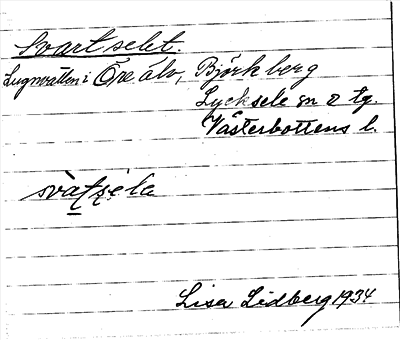 Svartselet.
Lugnvatten i Öre älv, Björkberg
Lycksele sn o tg.
Västerbottens l.
svàţşéla
Lisa Lidberg 1934